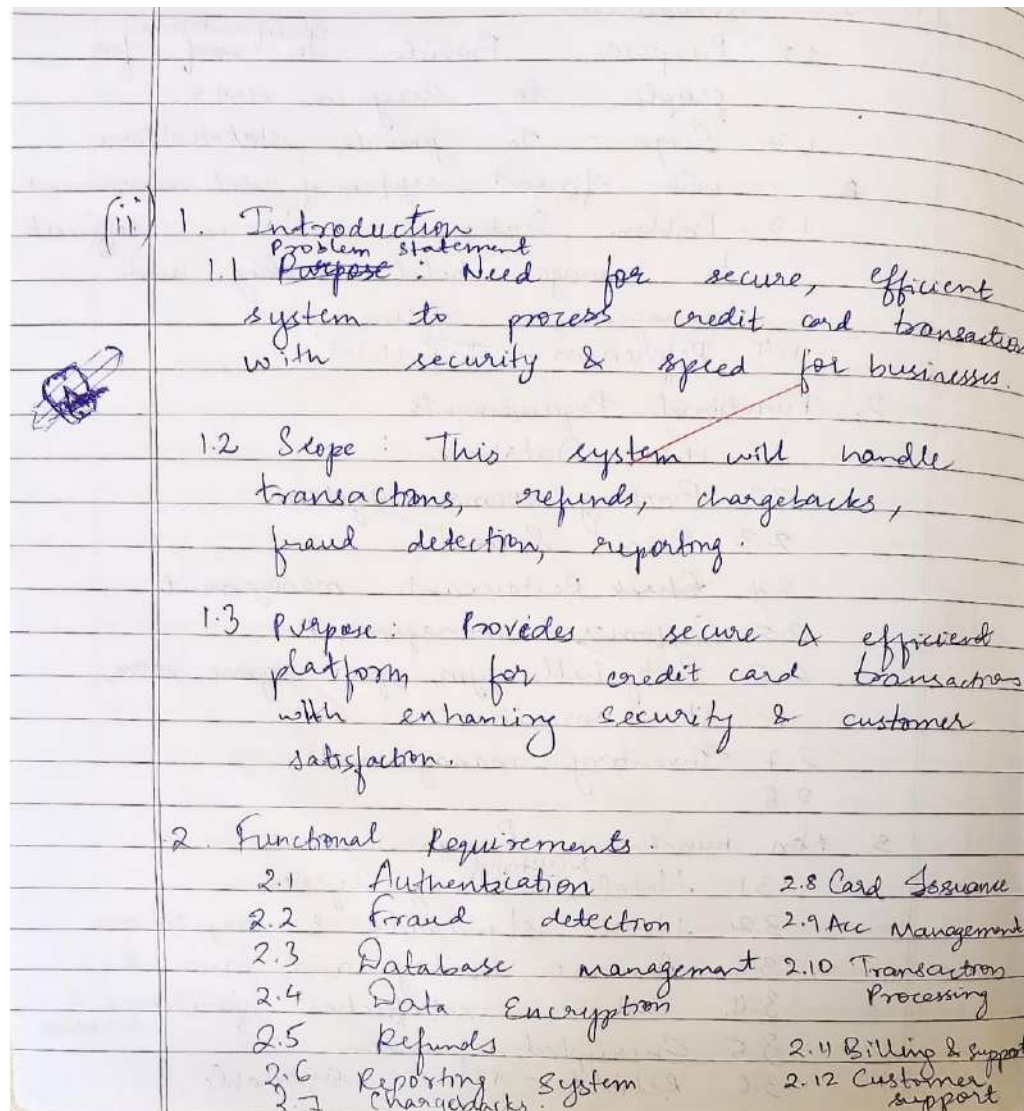 (ii) 1. Introduction
Problem statement
1.1 Purpose : Need for secure, efficient
system to process credit card transaction
with security & speed for businesses.
1.2 Scope : This system will handle
transactions, refunds, chargebacks,
fraud detection, reporting.
1.3 Purpose : Provides secure & efficient
platform for credit card transactions
with enhancing security & customer
satisfaction.
2. Functional Requirements.
2.1 Authentication
2.2 Fraud detection
2.3 Database management
2.4 Data Encryption
2.5 Refunds
2.6 Reporting System
2.7 Chargebacks.
2.8 Card Issuance
2.9 Acc Management
2.10 Transaction
Processing
2.11 Billing & support
2.12 Customer
support